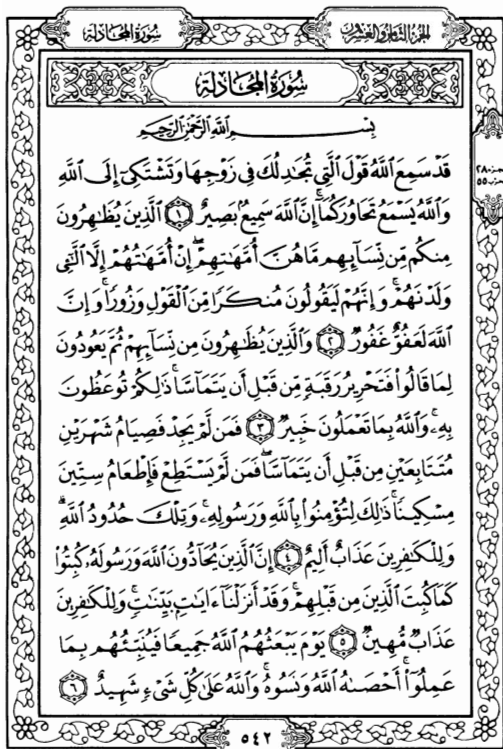 الجزء الثامن والعشرون
سورة المجادلة
سُورَةُ المُجَادلَةِ
بِسْمِ ٱللَّهِ ٱلرَّحْمَٰنِ ٱلرَّحِيمِ
قَدْ سَمِعَ ٱللَّهُ قَوْلَ ٱلَّتِى تُجَٰدِلُكَ فِى زَوْجِهَا وَتَشْتَكِىٓ إِلَى ٱللَّهِ
وَٱللَّهُ يَسْمَعُ تَحَاوُرَكُمَآ ۚ إِنَّ ٱللَّهَ سَمِيعٌۢ بَصِيرٌ ١ ٱلَّذِينَ يُظَٰهِرُونَ
مِنكُم مِّن نِّسَآئِهِم مَّا هُنَّ أُمَّهَٰتِهِمْ ۖ إِنْ أُمَّهَٰتُهُمْ إِلَّا ٱلَّٰٓـِٔى
وَلَدْنَهُمْ ۚ وَإِنَّهُمْ لَيَقُولُونَ مُنكَرًا مِّنَ ٱلْقَوْلِ وَزُورًا ۚ وَإِنَّ
ٱللَّهَ لَعَفُوٌّ غَفُورٌ ٢ وَٱلَّذِينَ يُظَٰهِرُونَ مِن نِّسَآئِهِمْ ثُمَّ يَعُودُونَ
لِمَا قَالُوا۟ فَتَحْرِيرُ رَقَبَةٍ مِّن قَبْلِ أَن يَتَمَآسَّا ۚ ذَٰلِكُمْ تُوعَظُونَ
بِهِۦ ۚ وَٱللَّهُ بِمَا تَعْمَلُونَ خَبِيرٌ ٣ فَمَن لَّمْ يَجِدْ فَصِيَامُ شَهْرَيْنِ
مُتَتَابِعَيْنِ مِن قَبْلِ أَن يَتَمَآسَّا ۖ فَمَن لَّمْ يَسْتَطِعْ فَإِطْعَامُ سِتِّينَ
مِسْكِينًا ۚ ذَٰلِكَ لِتُؤْمِنُوا۟ بِٱللَّهِ وَرَسُولِهِۦ ۚ وَتِلْكَ حُدُودُ ٱللَّهِ ۗ
وَلِلْكَٰفِرِينَ عَذَابٌ أَلِيمٌ ٤ إِنَّ ٱلَّذِينَ يُحَآدُّونَ ٱللَّهَ وَرَسُولَهُۥ كُبِتُوا۟
كَمَا كُبِتَ ٱلَّذِينَ مِن قَبْلِهِمْ ۚ وَقَدْ أَنزَلْنَآ ءَايَٰتٍۭ بَيِّنَٰتٍ ۚ وَلِلْكَٰفِرِينَ
عَذَابٌ مُّهِينٌ ٥ يَوْمَ يَبْعَثُهُمُ ٱللَّهُ جَمِيعًا فَيُنَبِّئُهُم بِمَا
عَمِلُوٓا۟ ۚ أَحْصَىٰهُ ٱللَّهُ وَنَسُوهُ ۚ وَٱللَّهُ عَلَىٰ كُلِّ شَىْءٍ شَهِيدٌ ٦
٢٨
٥٥
٥٤٢